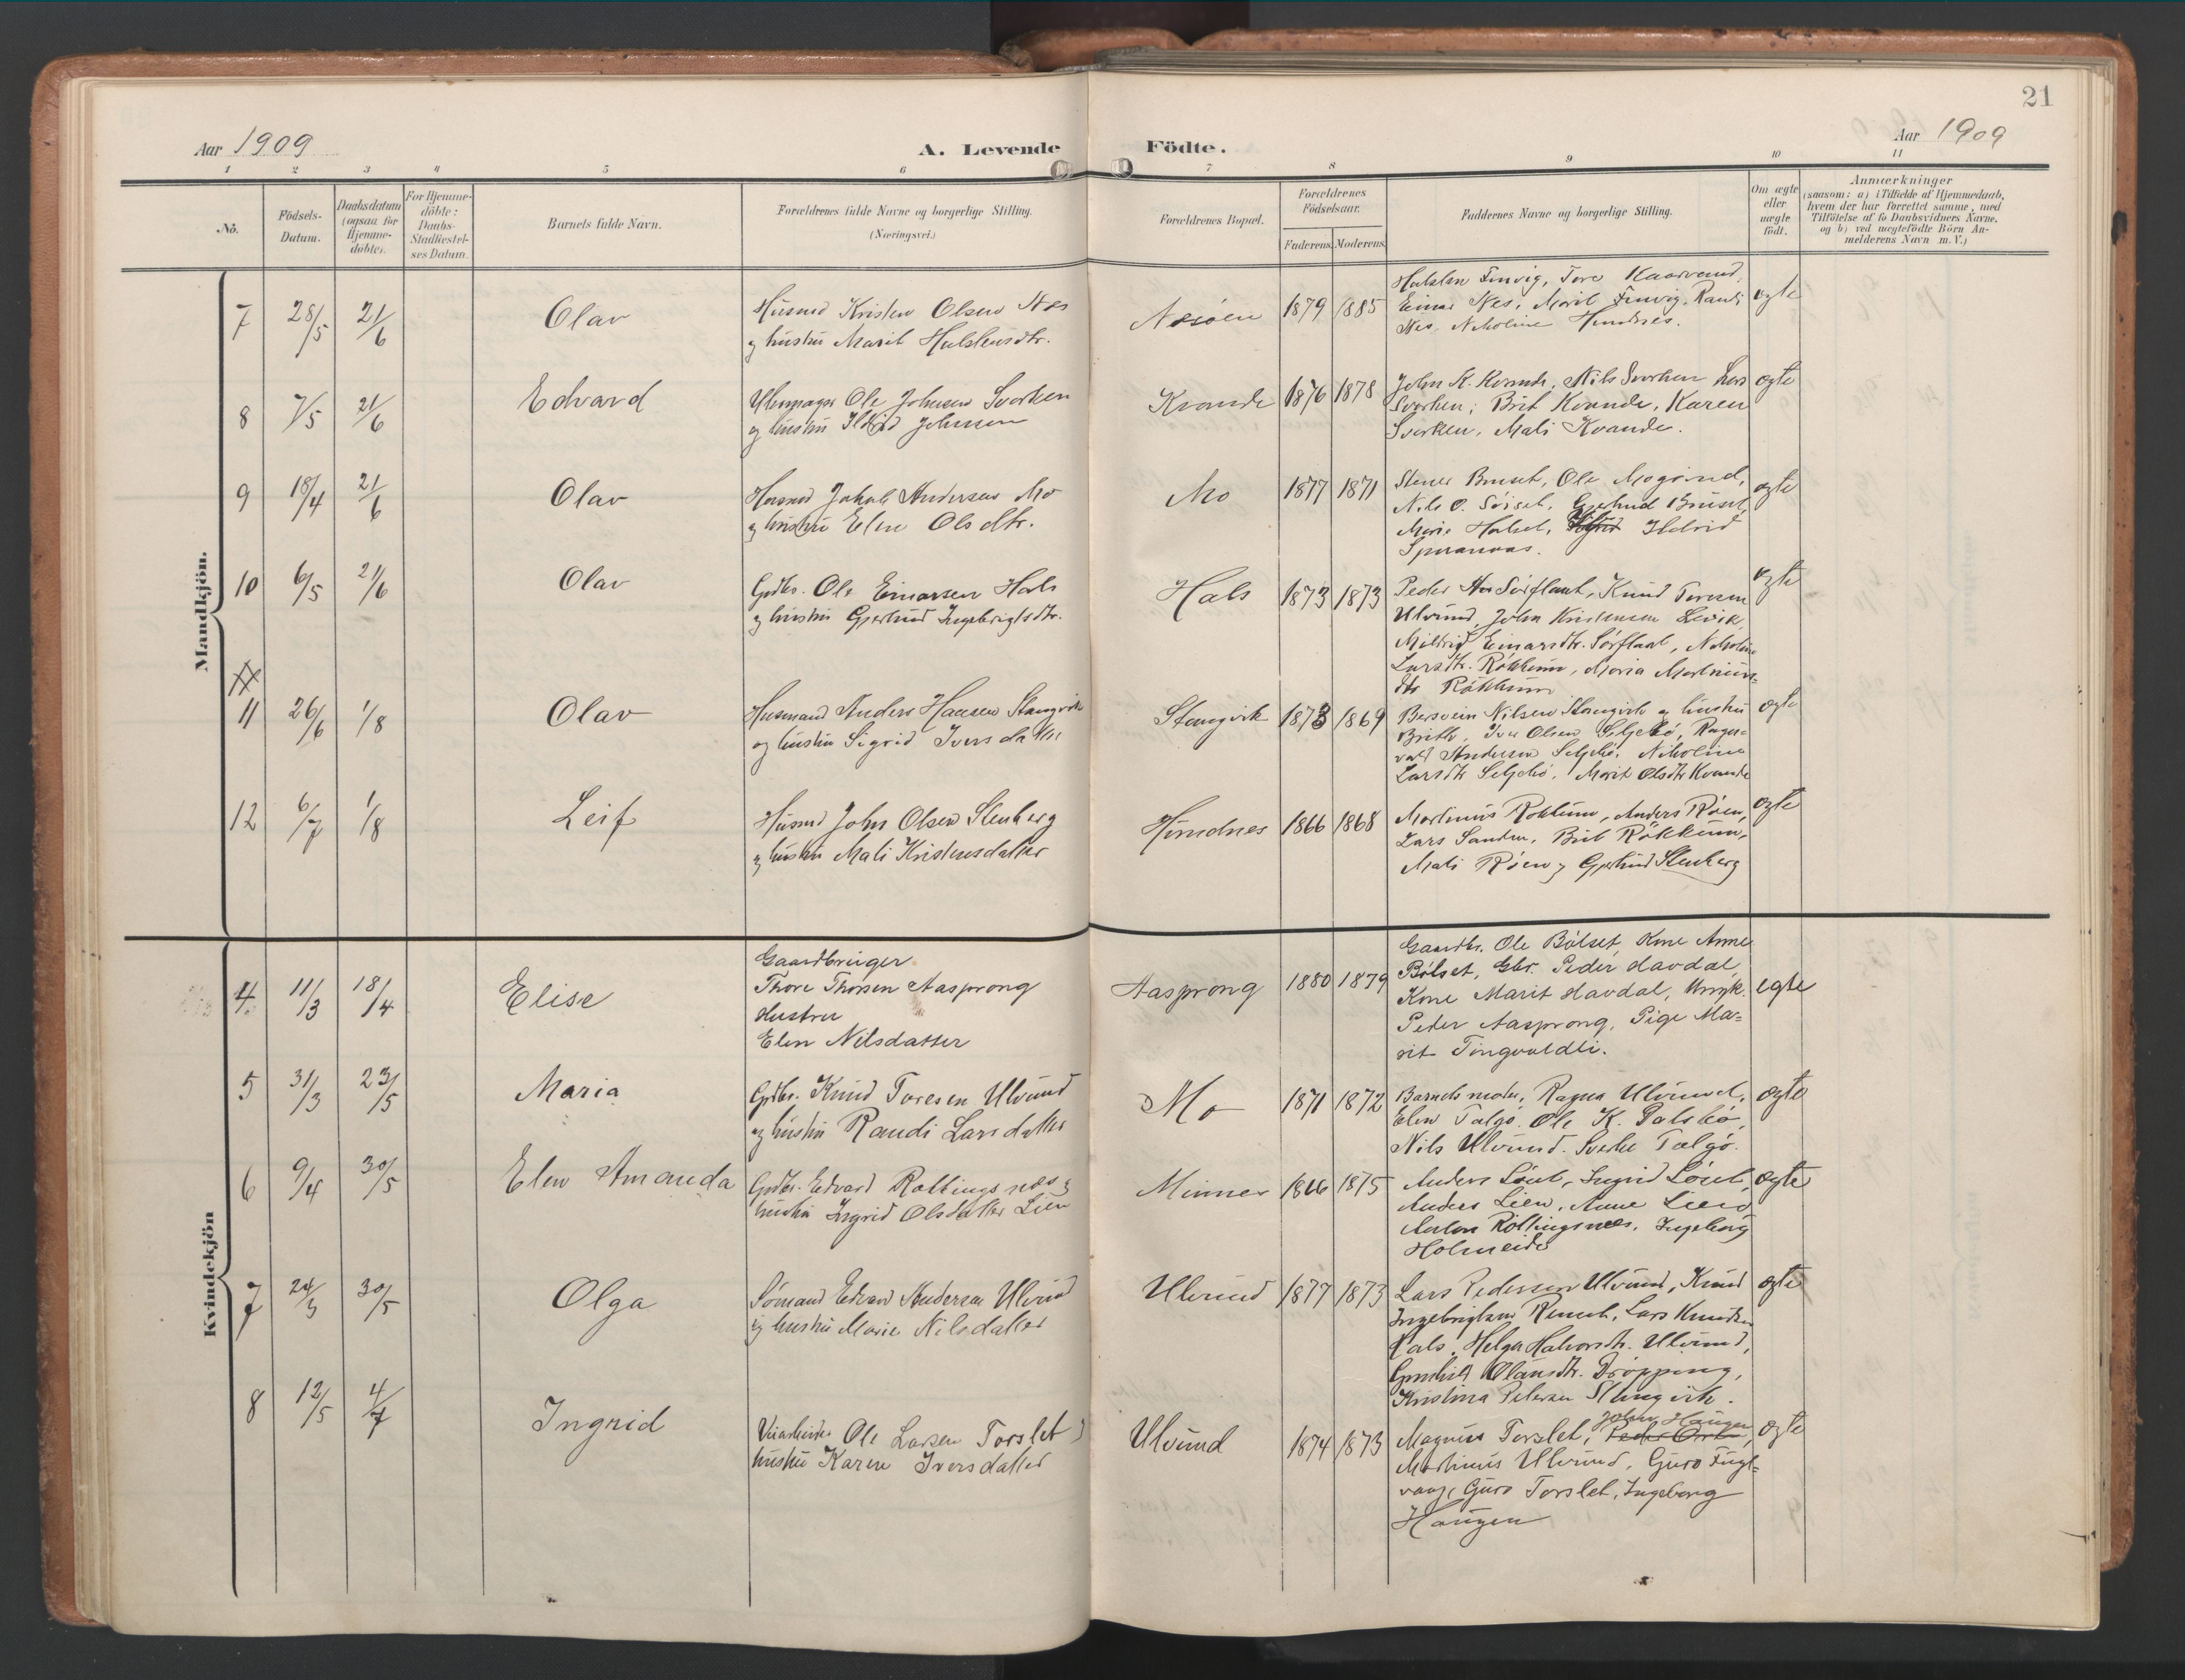 21
Aar 1909
A. Levende Födte.
Aar 1909
1 2 3 4 5 6 7 8 9 10 11
No.
Födsels-Datum.
Daabsdatum (ogsaa for Hjemme-döbte).
For Hjemme-döbte: Daabs-Stadfæstel-ses Datum.
Barnets fulde Navn.
Forældrenes fulde Navne og borgerlige Stilling.
(Næringsvei.)
Forældrenes Bopæl.
Forældrenes Födselsaar.
Faderens. Moderens.
Faddernes Navne og borgerlige Stilling.
Om ægte eller uægte födt.
Anmærkninger
(saasom: a) i Tilfælde af Hjemmedaab,
hvem der har forrettet samme, med
Tilföielse af to Daabsvidners Navne,
og b) ved uægtefödte Börn An-
melderens Navn m. V.)
Mandkjön.
7 28/5 21/6 Olav
Husmd Kristen Olsen Næs
og hustru Marit Halstensdtr.
Næsöen 1879 1885
Halsten Finvig, Tore Kaarvand,
Einar Nes, Marit Finvig, Randi
Nes, Nikoline Hindnes.
ægte
8 7/5 21/6 Edvard
Ole Johnsen Svorken
og hustru Ildrid Johnsen
Kvande 1876 1878
John K. Kvande, Nils Svorken, Lars
Svorken, Brit Kvande, Karen
Svorken, Mali Kvande.
ægte
9 18/4 21/6 Olav
Husmd Jakob Andersen Mo
og hustru Elen Olsdtr.
Mo 1877 1871
Bruset, Ole Mogrind,
Nils O. Söiset, Gjertrud Bruset,
Marie Halset, Ildrid
ægte
10 6/5 21/6 Olav
Gdbr. Ole Einarsen Hals
og hustru Gjertrud Ingebrigtsdtr.
Hals 1873 1873
Peder Sörflaat, Knud Toresen
Ulvund, John Kristensen Levik,
Mildrid Einarsdtr. Sörflaat, Nikoline
Larsdtr. Rökkum, Maria Martinus-
dtr Rökkum
ægte
11 26/6 1/8 Olav
Husmand Anders Hansen Stangvik
og hustru Sigrid Iversdatter
Stangvik 1873 1869
Bersvein Nilsen Stangvik og hustru
Brith, Iver Olsen Seljebö, Ragn-
vald Andersen Seljebö, Nikoline
Larsdtr Seljebö, Marit Olsdtr Kvande
ægte
12 6/7 1/8 Leif
Husmd John Olsen Stenberg
og hustru Mali Kristensdatter
Hindnes 1866 1868
Martinus Rökkum, Anders Röen,
Lars Sander, Brit Rökkum,
Mali Röen og Gjertrud Stenberg
ægte
Kvindekjön
4 11/3 18/4 Elise
Gaardbruger
Thore Thorsen Aasprong
Hustru
Elen Nilsdatter
Aasprong 1880 1879
Gaardbr. Ole Bölset, Kone Anne
Bölset, Gbr. Peder Havdal,
Kone Marit Havdal, Ungk.
Peder Aasprong, Pige Ma-
rit Tingvoldli.
egte
5 31/3 23/5 Maria
Gdbr. Knud Toresen Ulvund
og hustru Randi Larsdatter
Mo 1871 1872
Barnets moder, Ragna Ulvund,
Elen Talgö, Ole K. Talsbö,
Nils Ulvund, Sverke Talgö.
ægte
6 9/4 30/5 Elen Amanda
Gdbr. Edvard Rottingsnæs og
hustru Ingrid Olsdatter Lien
Minner 1866 1875
Anders Löset, Ingrid Löset,
Anders Lien, Anne Lien,
Anton Röttingsnæs, Ingeborg
Holmeide
ægte
7 24/3 30/5 Olga
Sömand Edvard Andersen Ulvund
og hustru Marie Nilsdatter
Ulvund 1877 1873
Lars Pedersen Ulvund, Knud
Ingebrigtsen, Lars Knudsen
Hals, Helga Halvorsdtr. Ulvund,
Gunhild Olausdtr. Dröpping,
Kristina Petersen Stangvik.
ægte
8 12/5 4/7 Ingrid
Veiarbeider Ole Larsen Torslet og
hustru Karen Iversdatter
Ulvund 1874 1873
Magnus Torslet, John Haugen,
Martinus Ulvund, Guro Fugl-
vaag, Guro Torslet, Ingeborg
Haugen
ægte